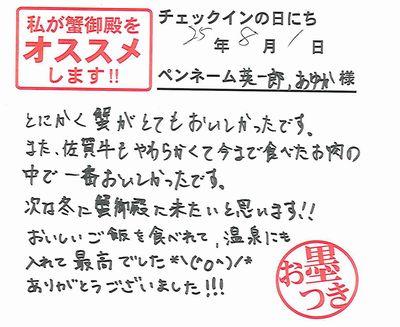 私が蟹御殿を
オススメ
します!!
チェックインの日にち
25年8月1日
ペンネーム英一郎,あゆか様
とにかく蟹がとてもおいしかったです。
また、佐賀牛もやわらかくて今まで食べたお肉の
中で一番おいしかったです。
次は冬に蟹御殿に来たいと思います!!
おいしいご飯を食べれて,温泉にも
入れて最高でした*\(^o^)/*
ありがとうございました!!!
お墨つき